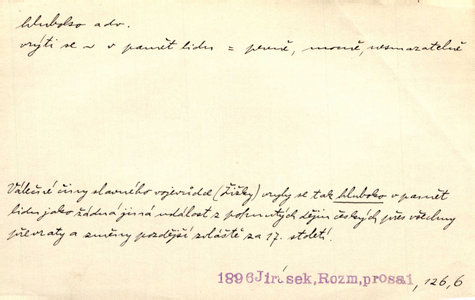 hluboko adv.
vrýti se ~ v paměť lidu = pevně, mocně, nesmazatelně
Válečné činy slavného vojevůdce (Žižky) vryly se tak hluboko v paměť
lidu jako žádná jiná událost z pohnutých dějin českých přes všechny
převraty a změny pozdější zvláště za 17. století.
1896 Jirásek, Rozm, prosa 1, 126,6